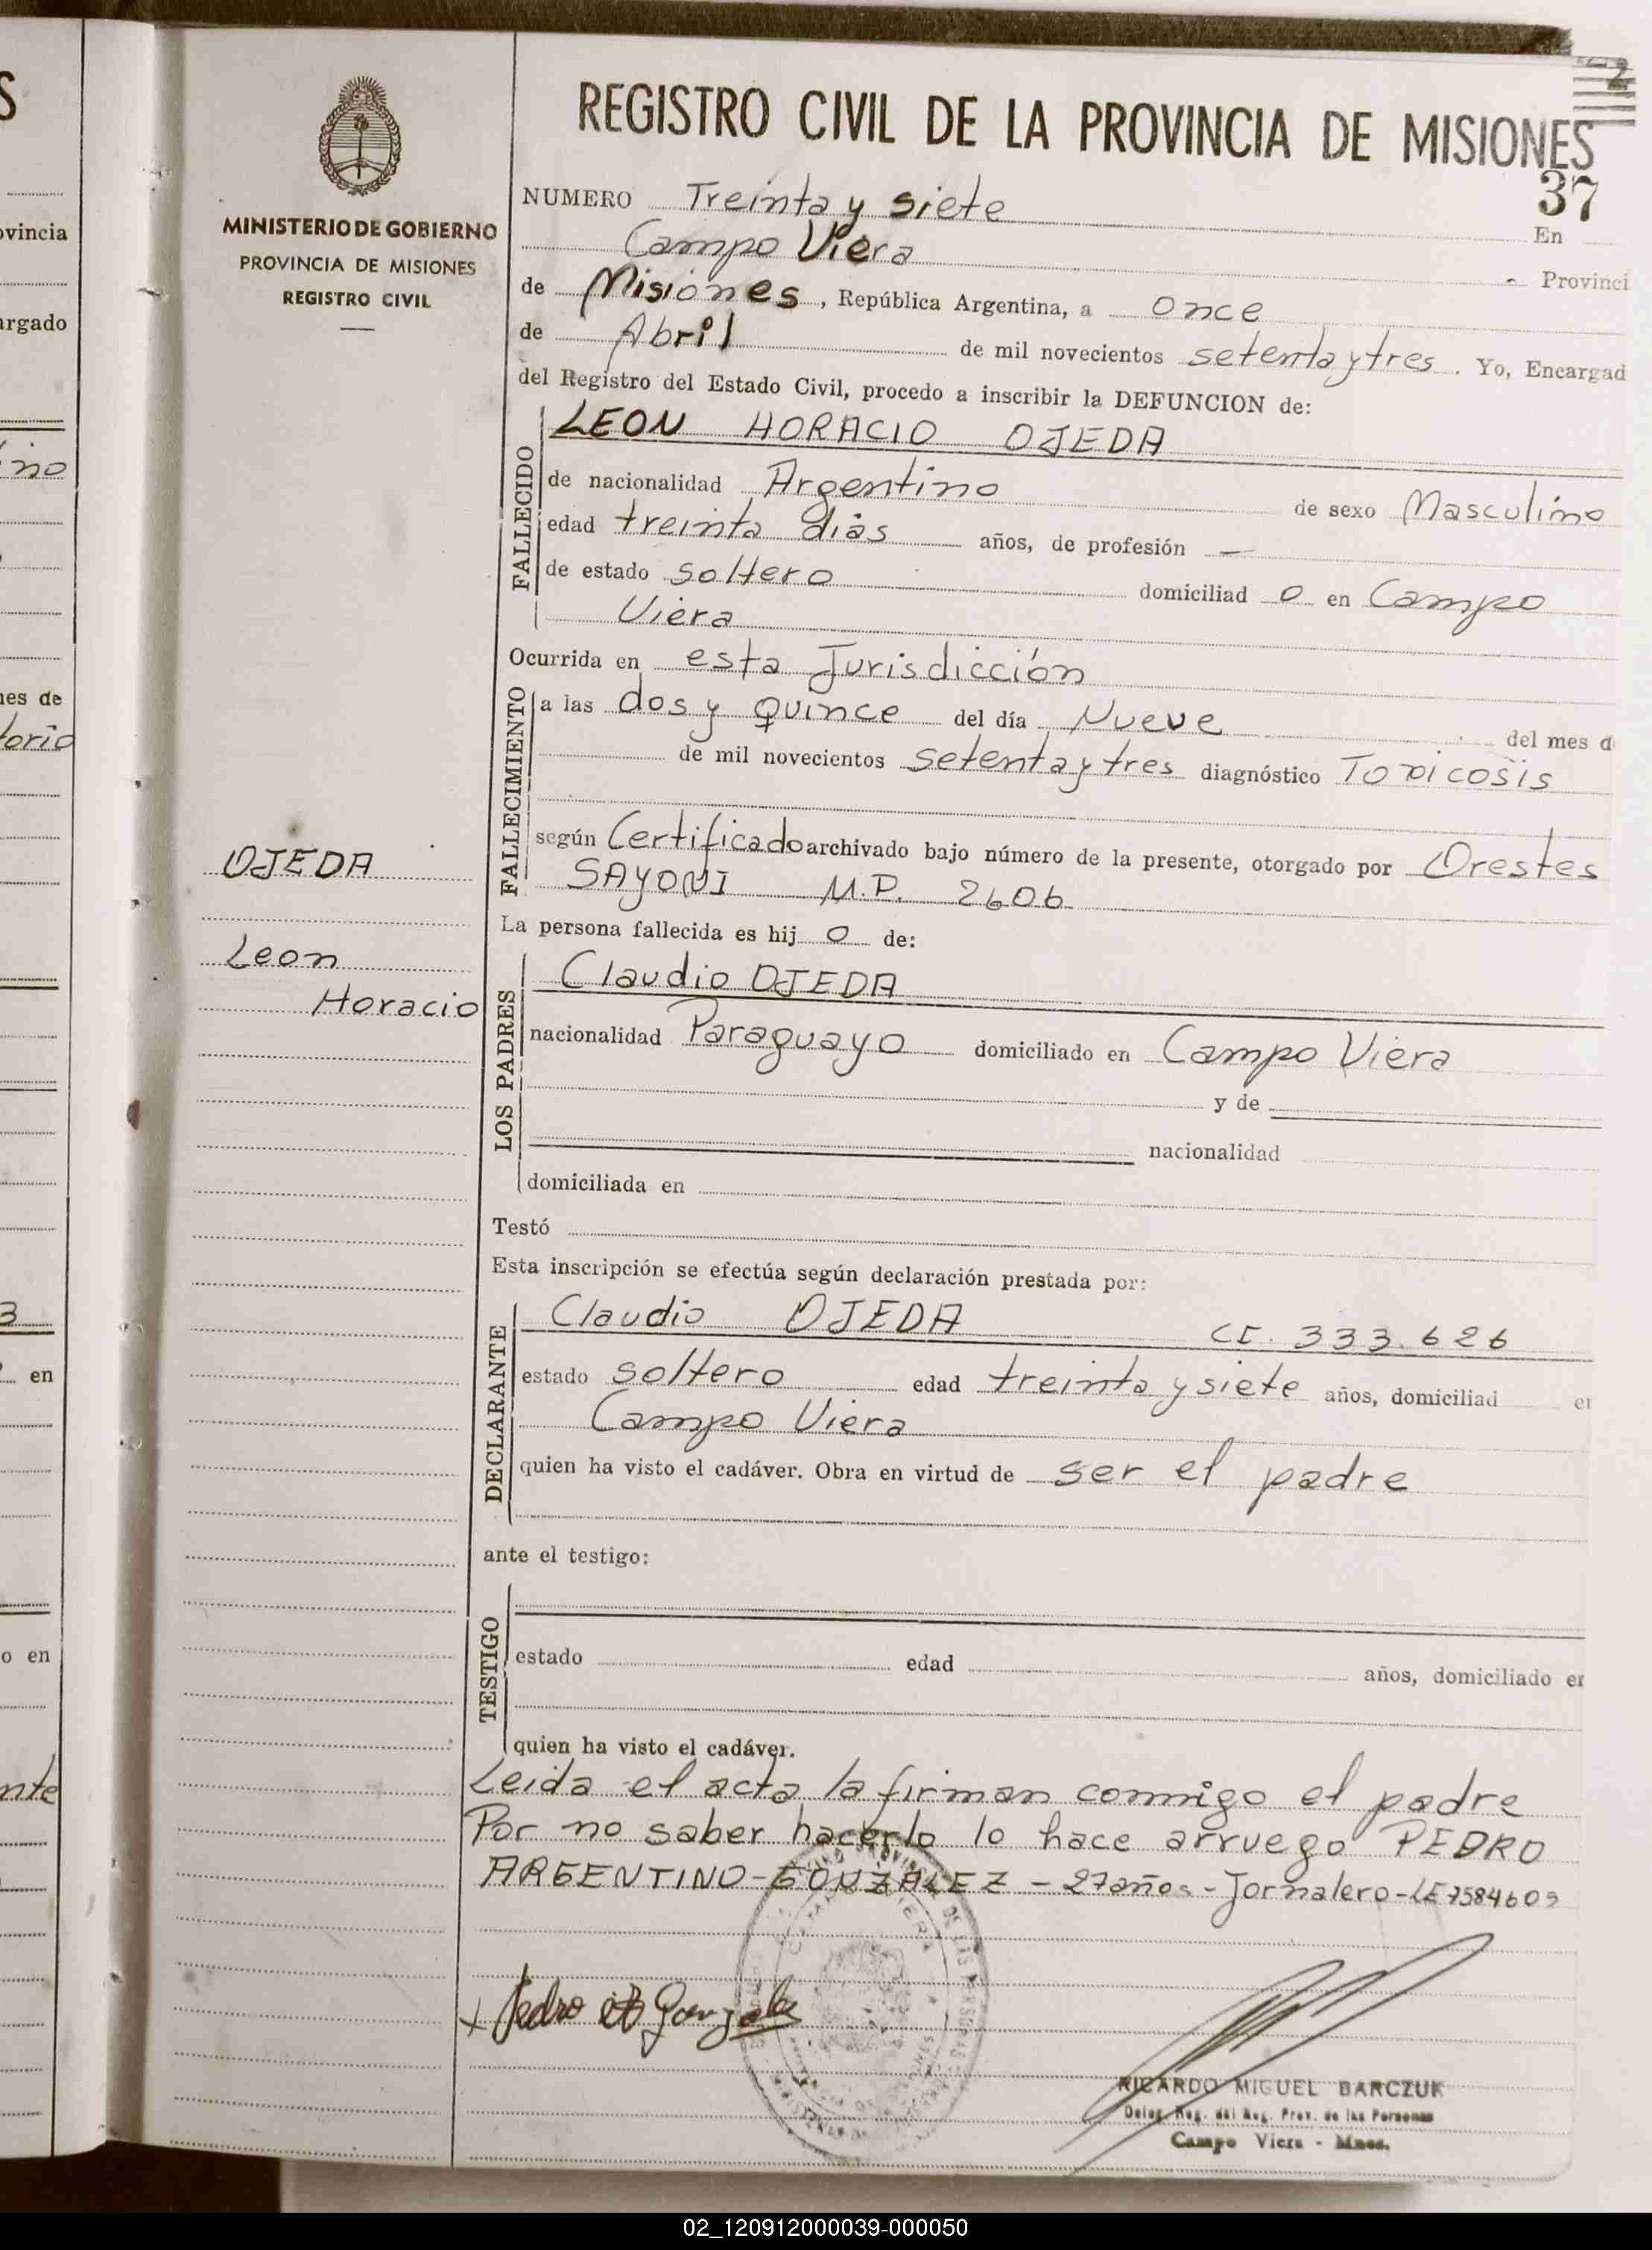 REGISTRO CIVIL DE LA PROVINCIA DE MISIONES
MINISTERIO DE GOBIERNO
PROVINCIA DE MISIONES
REGISTRO CIVIL
37
NUMERO Treinta y siete En
Campo Viera Provinci
de Misiones, República Argentina, a once
de Abril de mil novecientos setenta y tres. Yo, Encargad
del Registro del Estado Civil, procedo a inscribir la DEFUNCION de:
FALLECIDO
LEON HORACIO OJEDA
de nacionalidad Argentino de sexo Masculino
edad treinta dias años, de profesión —
de estado soltero domiciliad o en Campo
Viera
Ocurrida en esta Jurisdicción
FALLECIMIENTO
a las dos y Quince del día Nueve del mes d
de mil novecientos setenta y tres diagnóstico Toxicosis
según Certificado archivado bajo número de la presente, otorgado por Orestes
SAYONI M.P. 2606
OJEDA
Leon
Horacio
La persona fallecida es hij o de:
LOS PADRES
Claudio OJEDA
nacionalidad Paraguayo domiciliado en Campo Viera
y de
nacionalidad
domiciliada en
Testó
Esta inscripción se efectúa según declaración prestada por:
DECLARANTE
Claudio OJEDA CI. 333.626
estado soltero edad treinta y siete años, domiciliad
Campo Viera
quien ha visto el cadáver. Obra en virtud de ser el padre
ante el testigo:
TESTIGO
estado edad años, domiciliado en
quien ha visto el cadáver.
Leida el acta la firman conmigo el padre
Por no saber hacerlo lo hace arruego PEDRO
ARGENTINO-GONZALEZ - 27 años - Jornalero - LE 7584609
Pedro Gonzalez
RICARDO MIGUEL BARCZUK
Deleg. Reg. del Reg. Prov. de las Personas
Campo Viera - Mnes.
S
ovincia
argado
ino
nes de
torio
3
en
o en
nte
02_120912000039-000050